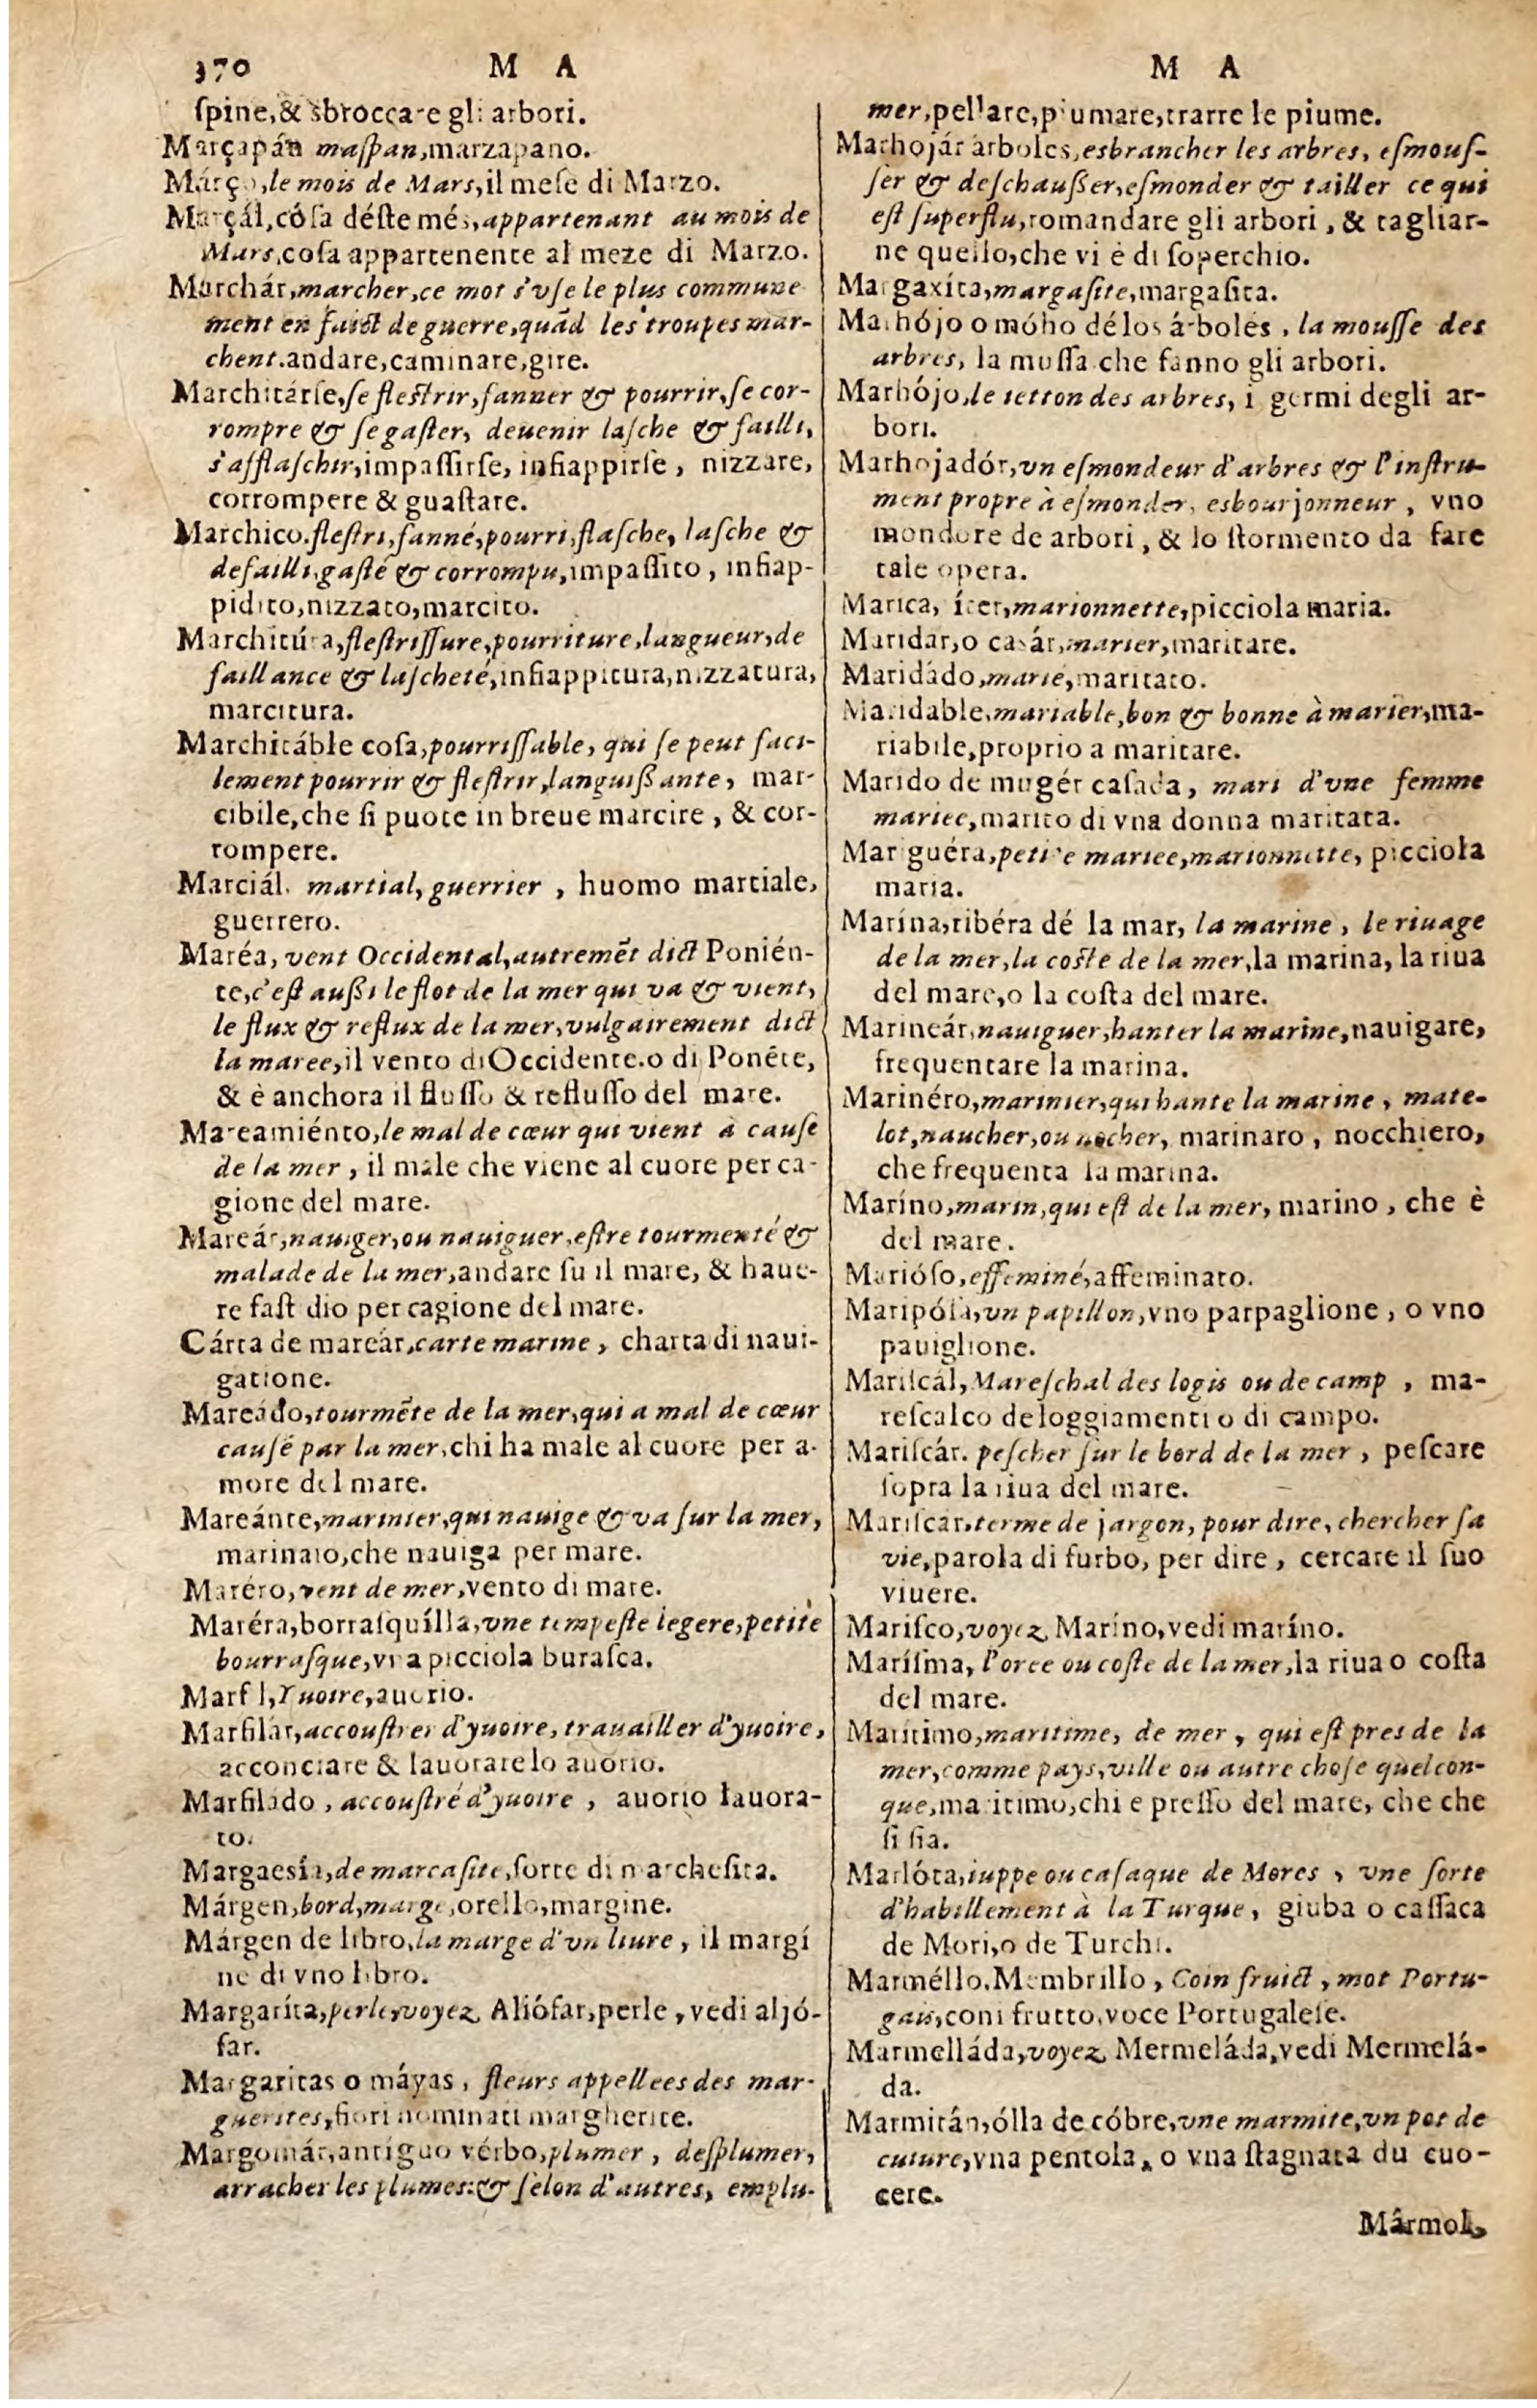 370 M A M A
ſpine,& sbroccare gli arbori.
Marçapán maſpan,marzapano.
Março,le mois de Mars,il meſe di Marzo.
Marçál,cóſa déſte més,appartenant au mois de
Mars,coſa appartenente al meze di Marzo.
Marchár,marcher,ce mot s'vſe le plus commune
ment en faict de guerre,quãd les troupes mar-
chent.andare,caminare,gire.
Marchitárſe,ſe fleſtrir,fanner & pourrir,ſe cor-
rompre & ſe gaſter, deuenir laſche & failli,
s'afflaſchir,impaſſirſe, infiappirſe, nizzare,
corrompere & guaſtare.
Marchico.fleſtri,fanné,pourri,flaſche, laſche &
defailli,gaſté & corrompu,impaſſito, infiap-
pidito,nizzato,marcito.
Marchitúra,fleſtriſſure,pourriture,langueur,de
faillance & laſcheté,infiappitura,nizzatura,
marcitura.
Marchitáble coſa,pourriſſable, qui ſe peut faci-
lement pourrir & fleſtrir,languißante, mar-
cibile,che ſi puote in breue marcire, & cor-
rompere.
Marciál. martial,guerrier, huomo martiale,
guerrero.
Maréa, vent Occidental,autremẽt dict Ponién-
te,c'eſt außi le flot de la mer qui va & vient,
le flux & reflux de la mer,vulgairement dict
la maree,il vento di Occidente.o di Ponẽte,
& è anchora il fluſſo & refluſſo del mare.
Mareamiénto,le mal de cœur qui vient à cauſe
de la mer, il male che viene al cuore per ca-
gione del mare.
Mareár,nauiger,ou nauiguer,eſtre tourmenté &
malade de la mer,andare ſu il mare, & haue-
re faſtidio per cagione del mare.
Cárta de mareár,carte marine, charta di naui-
gatione.
Mareádo,tourmẽte de la mer,qui a mal de cœur
cauſé par la mer,chi ha male al cuore per a-
more del mare.
Mareánte,marinier,qui nauige & va ſur la mer,
marinaio,che nauiga per mare.
Maréro,vent de mer,vento di mare.
Maréra,borraſquílla,vne tempeſte legere,petite
bourraſque,vna picciola buraſca.
Marfil,Yuoire,auorio.
Marfilár,accouſtrer d'yuoire, trauailler d'yuoire,
acconciare & lauorare lo auorio.
Marfiládo, accouſtré d'yuoire, auorio lauora-
to.
Margaesía,de marcaſite,ſorte di marcheſita.
Márgen,bord,marge,orello,margine.
Márgen de libro,la marge d'vn liure, il margí
ne di vno libro.
Margaríta,perle,voyez Aliófar,perle, vedi aljó-
far.
Margaritas o máyas, fleurs appellees des mar-
guerites,fiori nominati margherite.
Margomár,antíguo vérbo,plumer, deſplumer,
arracher les plumes:& ſelon d'autres, emplu-
mer,pellare,piumare,trarre le piume.
Marhojár árboles,esbrancher les arbres, eſmouſ-
ſer & deſchaußer,eſmonder & tailler ce qui
eſt ſuperflu,romandare gli arbori, & tagliar-
ne quello,che vi è di ſoperchio.
Margaxíta,margaſite,margaſita.
Marhójo o móho délos árboles, la mouſſe des
arbres, la muſſa che fanno gli arbori.
Marhójo,le tetton des arbres, i germi degli ar-
bori.
Marhojadór,vn eſmondeur d'arbres & l'inſtru-
ment propre à eſmonder, esbourjonneur, vno
mondore de arbori, & lo ſtormento da fare
tale opera.
Marica, íter,marionnette,picciola maria.
Maridar,o casár,marier,maritare.
Maridádo,marié,maritato.
Maridable,mariable,bon & bonne à marier,ma-
riabile,proprio a maritare.
Marido de mugér caſada, mari d'vne femme
mariee,marito di vna donna maritata.
Mariguéra,petite mariee,marionnette, picciola
maria.
Marína,ribéra dé la mar, la marine, le riuage
de la mer,la coſte de la mer,la marina, la riua
del mare,o la coſta del mare.
Marineár,nauiguer,hanter la marine,nauigare,
frequentare la marina.
Marinéro,marinier,qui hante la marine, mate-
lot,naucher,ou nocher, marinaro, nocchiero,
che frequenta la marina.
Maríno,marin,qui eſt de la mer, marino, che è
del mare.
Marióſo,effeminé,affeminato.
Maripóſa,vn papillon,vno parpaglione, o vno
pauiglione.
Mariſcál,Mareſchal des logis ou de camp, ma-
reſcalco deloggiamenti o di campo.
Mariſcár. peſcher ſur le bord de la mer, peſcare
ſopra la riua del mare.
Mariſcar,terme de jargon, pour dire, chercher ſa
vie,parola di furbo, per dire, cercare il ſuo
viuere.
Mariſco,voyez Maríno,vedi maríno.
Maríſma, l'oree ou coſte de la mer,la riua o coſta
del mare.
Maritimo,maritime, de mer, qui eſt pres de la
mer,comme pays,ville ou autre choſe quelcon-
que,maritimo,chi e preſſo del mare, che che
ſi ſia.
Marlóta,iuppe ou caſaque de Mores, vne ſorte
d'habillement à la Turque, giuba o caſſaca
de Mori,o de Turchi.
Marméllo.Membrillo, Coin fruict, mot Portu-
gais,coni frutto,voce Portugaleſe.
Marmelláda,voyez Mermeláda,vedi Mermelá-
da.
Marmitán,ólla de cóbre,vne marmite,vn pot de
cuiure,vna pentola, o vna ſtagnata du cuo-
cere.
Mârmol,